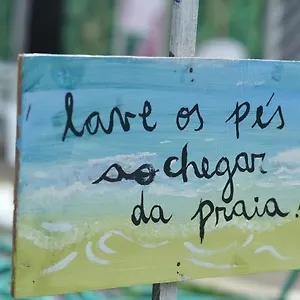 lave os pés
ao chegar
da praia.